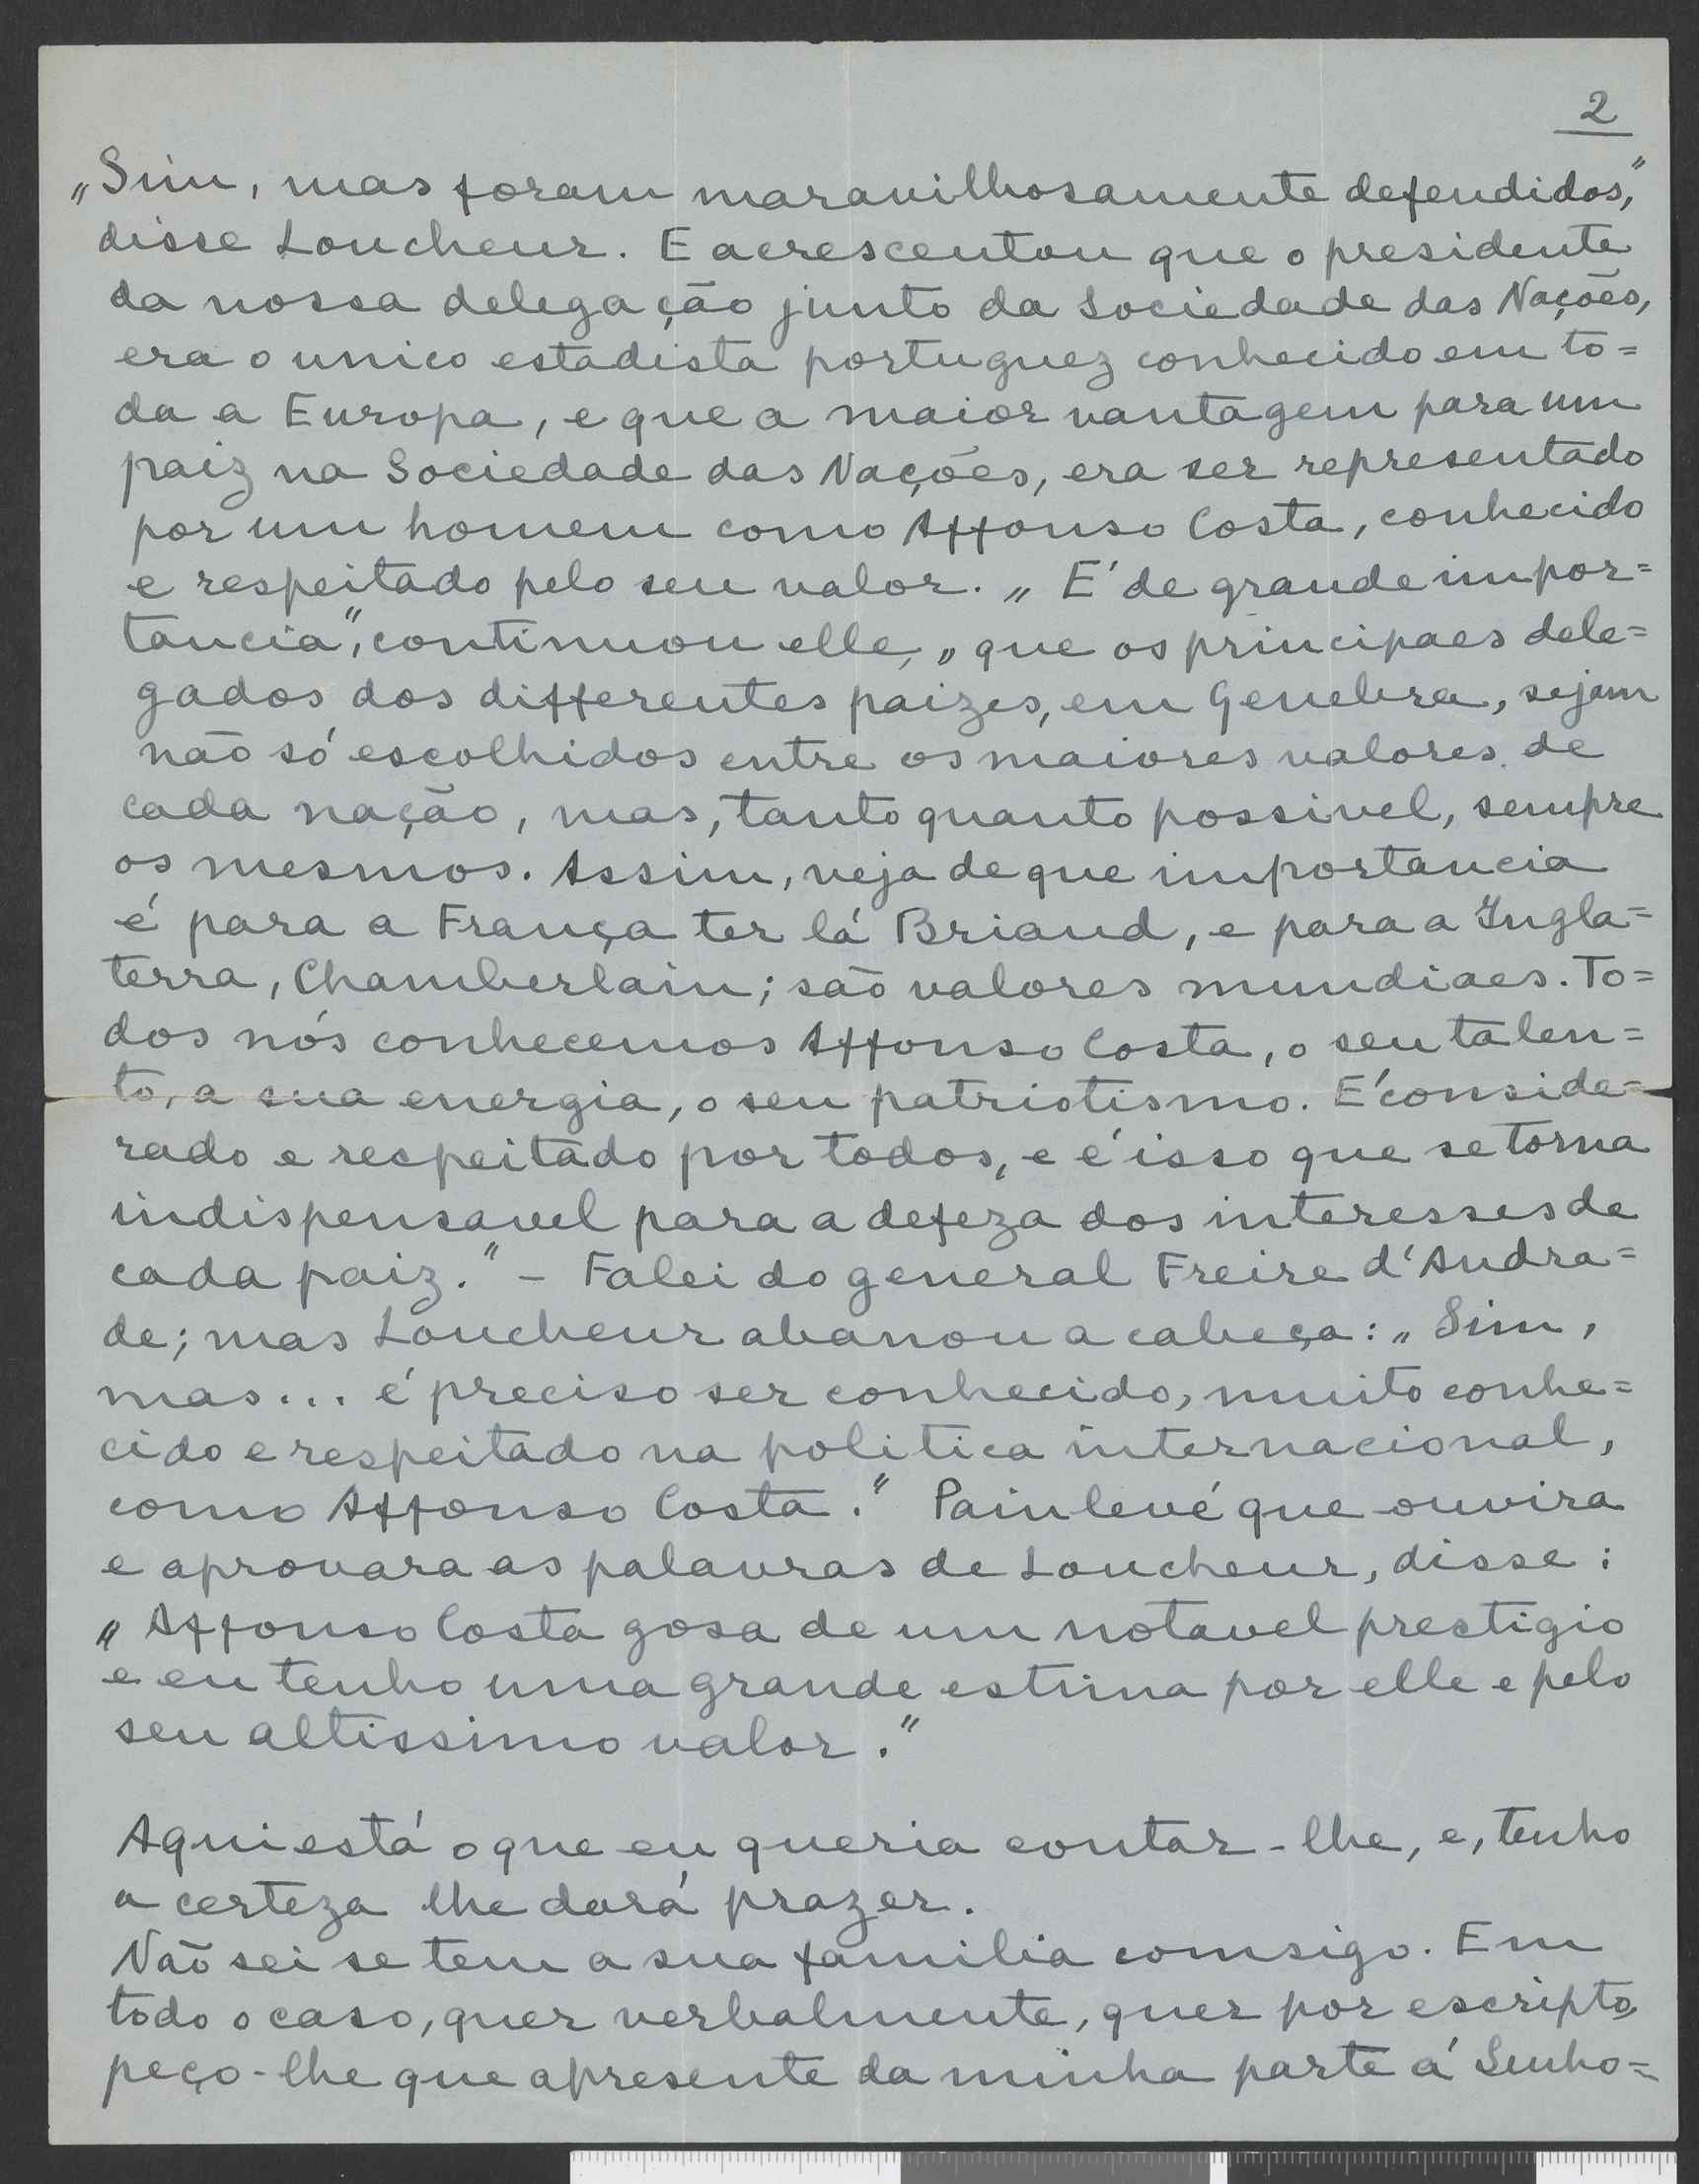 2
„Sim, mas foram maravilhosamente defendidos,”
disse Loucheur. E acrescentou que o presidente
da nossa delegação junto da Sociedade das Nações,
era o unico estadista portuguez conhecido em to=
da a Europa, e que a maior vantagem para um
paiz na Sociedade das Nações, era ser representado
por um homem como Affonso Costa, conhecido
e respeitado pelo seu valor. „E' de grande impor=
tancia”, continuou elle, „que os principaes dele=
gados dos differentes paizes, em Genebra, sejam
não só escolhidos entre os maiores valores de
cada nação, mas, tanto quanto possivel, sempre
os mesmos. Assim, veja de que importancia
é para a França ter lá Briand, e para a Ingla=
terra, Chamberlain; são valores mundiaes. To=
dos nós conhecemos Affonso Costa, o seu talen=
to, a sua energia, o seu patriotismo. E' conside=
rado e respeitado por todos, e é isso que se torna
indispensavel para a defeza dos interesses de
cada paiz.” – Falei do general Freire d'Andra=
de; mas Loucheur abanou a cabeça: „Sim,
mas... é preciso ser conhecido, muito conhe=
cido e respeitado na politica internacional,
como Affonso Costa.” Painlevé que ouvira
e aprovara as palavras de Loucheur, disse:
„Affonso Costa gosa de um notavel prestigio
e eu tenho uma grande estima por elle e pelo
seu altissimo valor.”
Aqui está o que eu queria contar-lhe, e, tenho
a certeza lhe dará prazer.
Não sei se tem a sua familia comsigo. Em
todo o caso, quer verbalmente, quer por escripto,
peço-lhe que apresente da minha parte á Senho=